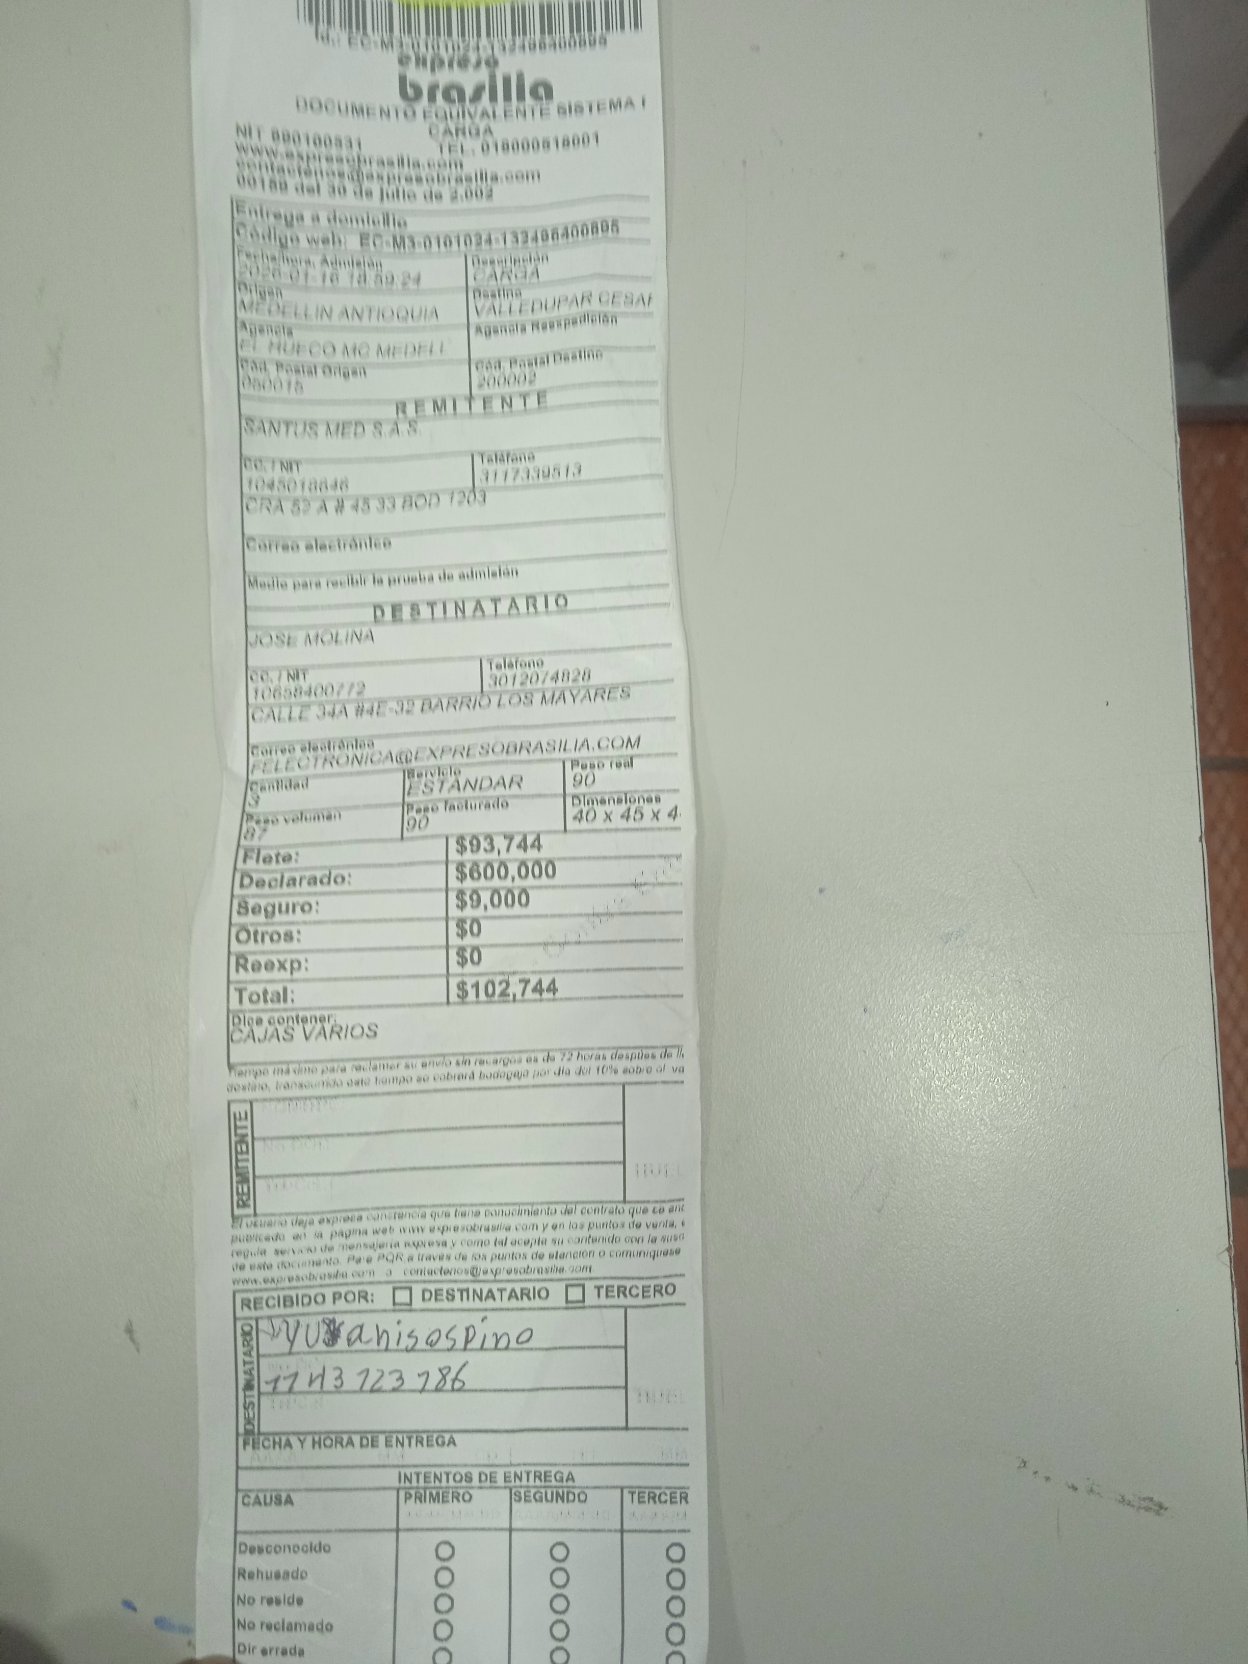 Id.: EC-M3-0101024-132496400695
expreso
brasilia
DOCUMENTO EQUIVALENTE SISTEMA
CARGA
NIT 890100531 TEL. 018000518001
www.expresobrasilia.com
contactenos@expresobrasilia.com
00189 del 30 de julio de 2.002
Entrega a domicilio
Código web: EC-M3-0101024-132496400695
Fecha/hora. Admisión Descripción
2026-01-16 18:59:24 CARGA
Origen Destino
MEDELLIN ANTIOQUIA VALLEDUPAR CESAR
Agencia Agencia Reexpedición
EL HUECO MC MEDELL
Cód. Postal Origen Cód. Postal Destino
050015 200002
REMITENTE
SANTUS MED S.A.S.
CC. / NIT Teléfono
1045018646 3117339513
CRA 52 A # 45 33 BOD 1203
Correo electrónico
Medio para recibir la prueba de admisión
DESTINATARIO
JOSE MOLINA
CC. / NIT Teléfono
10658400772 3012074828
CALLE 34A #4E-32 BARRIO LOS MAYARES
Correo electrónico
FELECTRONICA@EXPRESOBRASILIA.COM
Cantidad Servicio Peso real
3 ESTANDAR 90
Peso volumen Peso facturado Dimensiones
87 90 40 x 45 x 4
Flete: $93,744
Declarado: $600,000
Seguro: $9,000
Otros: $0
Reexp: $0
Total: $102,744
Dice contener:
CAJAS VARIOS
Tiempo máximo para reclamar su envío sin recargos es de 72 horas después de
destino, transcurrido este tiempo se cobrará bodegaje por día del 10% sobre el va
REMITENTE
El usuario deja expresa constancia que tiene conocimiento del contrato que se
publicado en la página web www.expresobrasilia.com y en los puntos de venta,
regula servicio de mensajería expresa y como tal acepta su contenido con la
de este documento. Para PQR a través de los puntos de atención o comuníquese
www.expresobrasilia.com o contactenos@expresobrasilia.com
RECIBIDO POR: DESTINATARIO TERCERO
DESTINATARIO
yuranisospino
1143123186
FECHA Y HORA DE ENTREGA
INTENTOS DE ENTREGA
CAUSA PRIMERO SEGUNDO TERCER
Desconocido
Rehusado
No reside
No reclamado
Dir errada